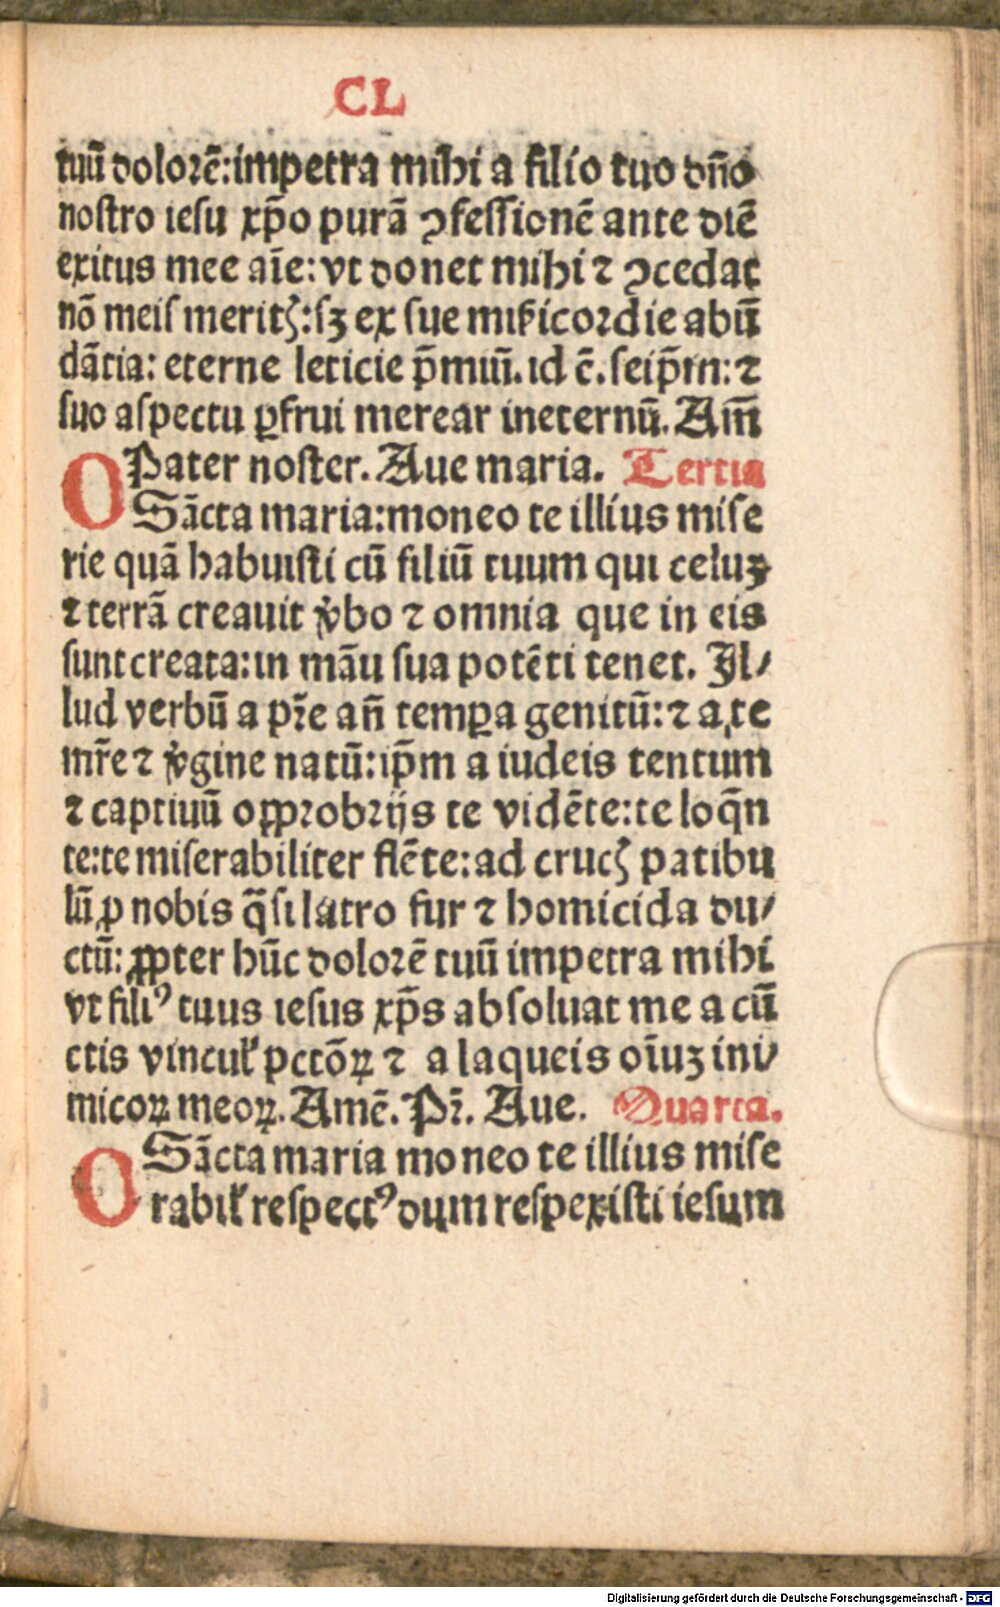 CL
tuū dolorē: impetra mihi a filio tuo dño
nostro iesu xp̄o purā ꝯfessionē ante diē
exitus mee aīe: vt donet mihi ⁊ ꝯcedat
nō meis meritꝭ: sꝫ ex sue mīƙicordie abū
dātia: eterne leticie p̄miū. id ē. seip̄m: ⁊
suo aspectu ꝑfrui merear ineternū. Am̄
Pater noster. Aue maria. Tertia
O Sācta maria: moneo te illius mise
rie quā habuisti cū filiū tuum qui celuꝫ
⁊ terrā creauit v̓bo ⁊ omnia que in eis
sunt creata: in māu sua potēti tenet. Il⸗
lud verbū a pr̄e añ tempꝑa genitū: ⁊ a te
mr̄e ⁊ v̓gine natū: ip̄m a iudeis tentum
⁊ captiuū opꝓbrijs te vidēte: te loq̄n
te: te miserabiliter flēte: ad crucꝭ patibu
lū ꝓ nobis q̄si latro fur ⁊ homicida du⸗
ctū: ꝓpter hūc dolorē tuū impetra mihi
vt filiꝰ tuus iesus xp̄s absoluat me a cū
ctis vincul̓ pctōꝝ ⁊ a laqueis oīuꝫ ini⸗
micoꝝ meoꝝ. Amē. Pr̄. Aue. Quarta.
O Sācta maria moneo te illius mise
rabil̓ respectꝰ dum respexisti iesum
Digitalisierung gefördert durch die Deutsche Forschungsgemeinschaft - DFG